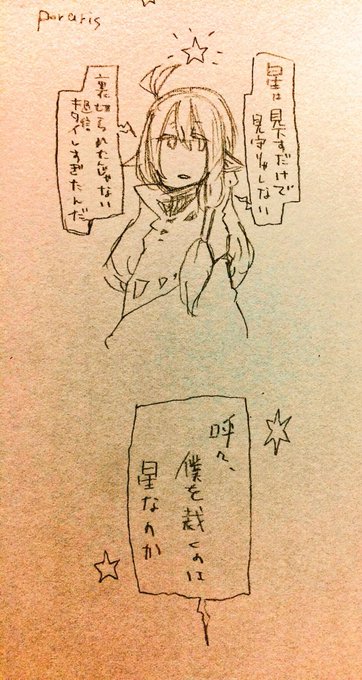 poraris
星は見下すだけで
見守りゃしない
裏切られたんじゃない
キタイしすぎたんだ
呼々、
僕を裁くのは
星なのか